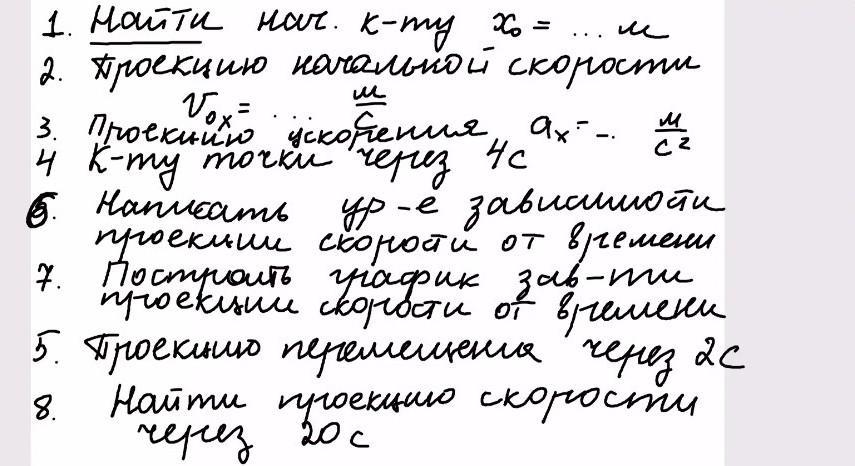 1. Найти нач. к-ту x₀ = ... м
2. Проекцию начальной скорости
V₀ₓ = ... м/с
3. Проекцию ускорения aₓ = -. м/с²
4 К-ту точки через 4с
6. Написать ур-е зависимости
проекции скорости от времени
7. Построить график зав-ти
проекции скорости от времени
5. Проекцию перемещения через 2с
8. Найти проекцию скорости
через 20с